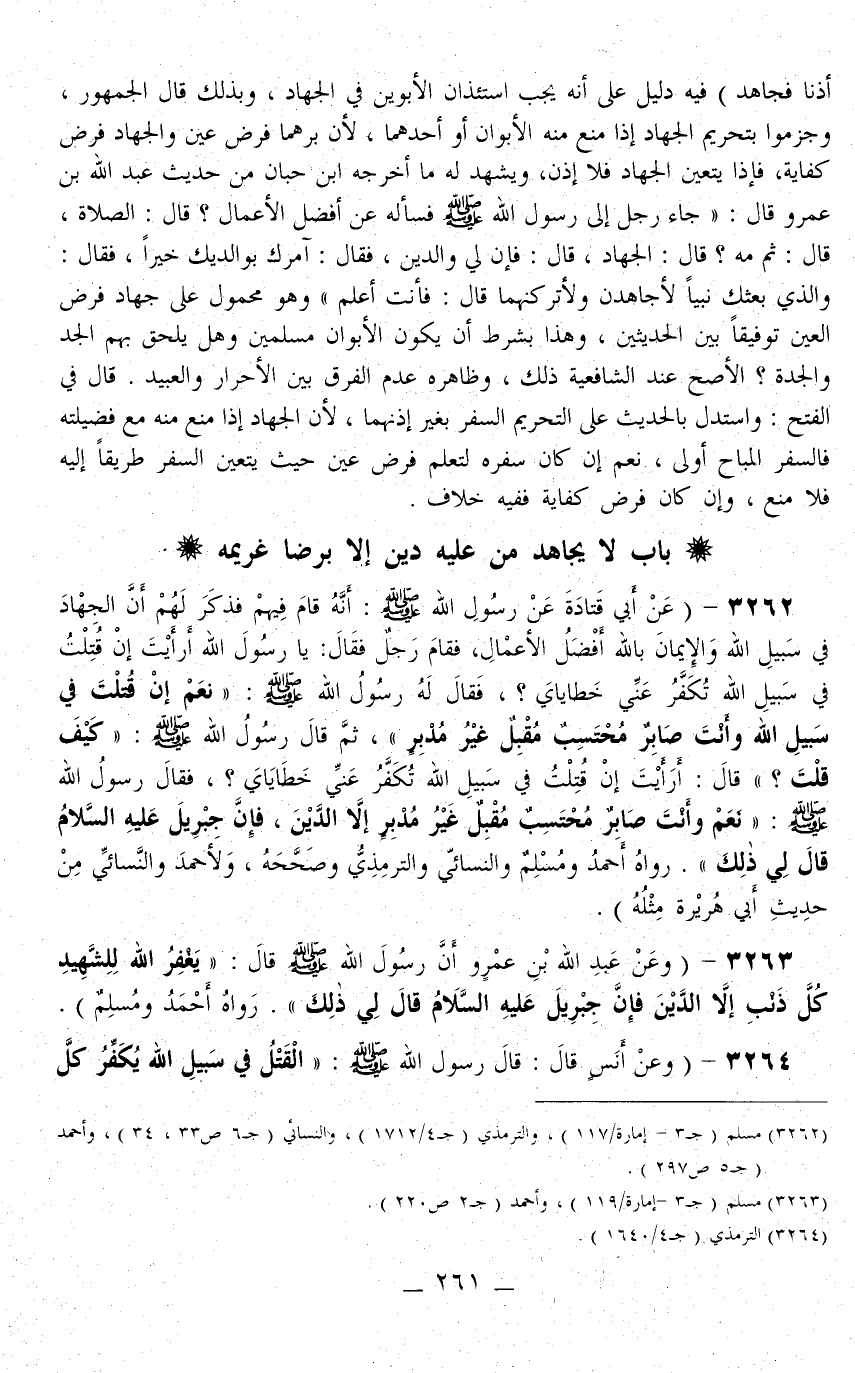 أذنا فجاهد ) فيه دليل على أنه يجب استئذان الأبوين في الجهاد ، وبذلك قال الجمهور ،
وجزموا بتحريم الجهاد إذا منع منه الأبوان أو أحدهما ، لأن برهما فرض عين والجهاد فرض
كفاية، فإذا يتعين الجهاد فلا إذن، ويشهد له ما أخرجه ابن حبان من حديث عبد الله بن
عمرو قال : « جاء رجل إلى رسول الله ﷺ فسأله عن أفضل الأعمال ؟ قال : الصلاة ،
قال : ثم مه ؟ قال : الجهاد ، قال : فإن لي والدين ، فقال : آمرك بوالديك خيراً ، فقال :
والذي بعثك نبياً لأجاهدن ولأتركنهما قال : فأنت أعلم » وهو محمول على جهاد فرض
العين توفيقاً بين الحديثين ، وهذا بشرط أن يكون الأبوان مسلمين وهل يلحق بهم الجد
والجدة ؟ الأصح عند الشافعية ذلك ، وظاهره عدم الفرق بين الأحرار والعبيد . قال في
الفتح : واستدل بالحديث على التحريم السفر بغير إذنهما ، لأن الجهاد إذا منع منه مع فضيلته
فالسفر المباح أولى ، نعم إن كان سفره لتعلم فرض عين حيث يتعين السفر طريقاً إليه
فلا منع ، وإن كان فرض كفاية ففيه خلاف .
❋ باب لا يجاهد من عليه دين إلا برضا غريمه ❋
٣٢٦٢ – ( عَنْ أَبي قَتادَةَ عَنْ رسُولِ الله ﷺ : أَنَّهُ قامَ فِيهِمْ فذكَرَ لَهُمْ أَنَّ الجِهْادَ
في سَبِيلِ الله وَالإِيمانَ بالله أَفْضَلُ الأعمْالِ، فقامَ رَجلٌ فقَالَ: يا رسُولَ الله أَرأَيْتَ إنْ قُتِلْتُ
في سَبِيلِ الله تُكَفَّرُ عَنِّي خَطاياي ؟ ، فَقالَ لَهُ رسُولُ الله ﷺ : « نعَمْ إنْ قُتلْتَ في
سَبيلِ الله وأَنْتَ صَابِرٌ مُحْتَسِبٌ مُقْبِلٌ غَيْرُ مُدْبِرٍ » ، ثمَّ قالَ رسُولُ الله ﷺ : « كَيْفَ
قلْتَ ؟ » قالَ : أَرَأَيْتَ إنْ قُتِلْتُ في سَبيلِ الله تُكَفَّرُ عَنيِّ خَطَايَاي ؟ ، فقالَ رسولُ الله
ﷺ : « نعَمْ وأَنْتَ صَابرٌ مُحْتَسبٌ مُقْبلٌ غَيْرُ مُدْبِرٍ إلَّا الدَّيْنَ ، فإنَّ جِبْريلَ عَليهِ السَّلامُ
قالَ لِي ذٰلِكَ » . رواهُ أَحمدُ ومُسْلِمٌ والنسائيّ والترمذِيُّ وصَحَّحَهُ ، وَلأحمدَ والنَّسائيِّ مِنْ
حدِيثِ أَبي هُريْرة مِثْلُهُ ) .
٣٢٦٣ – ( وعَنْ عَبدِ الله بْنِ عمْرٍو أَنَّ رسُولَ الله ﷺ قالَ : « يَغْفرُ الله لِلشَّهِيدِ
كُلَّ ذَنْبٍ إلَّا الدَّيْنَ فإنَّ جِبْريلَ عَليهِ السَّلامُ قالَ لي ذٰلِكَ » . رَواهُ أَحْمَدُ ومُسلِمٌ ) .
٣٢٦٤ – ( وعنْ أَنَسٍ قالَ : قالَ رسول الله ﷺ : « الْقَتْلُ في سَبيلِ الله يُكَفِّرُ كلَّ
(٣٢٦٢) مسلم ( جـ٣ – إمارة/١١٧ ) ، والترمذي ( جـ١٧١٢/٤ ) ، والنسائي ( جـ٦ ص٣٣ ، ٣٤ ) ، وأحمد
( جـ٥ ص٢٩٧ ) .
(٣٢٦٣) مسلم ( جـ٣ –إمارة/١١٩ ) ، وأحمد ( جـ٢ ص٢٢٠ ) .
(٣٢٦٤) الترمذي ( جـ١٦٤٠/٤ ) .
– ٢٦١ –